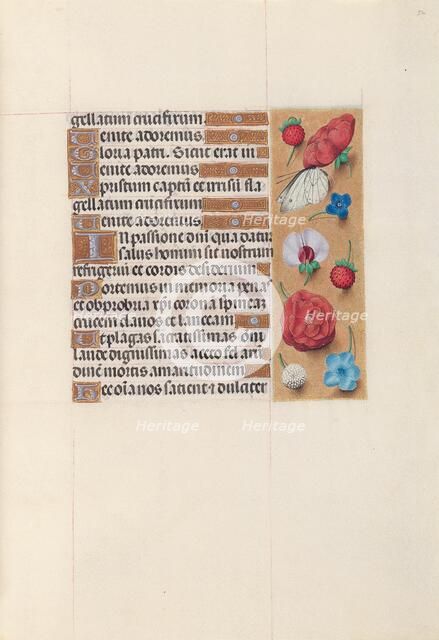 gellatum crucifixum.
Venite adoremus.
Gloria patri. Sicut erat in
Venite adoremus
Xpristum captū et irrisū fla
gellatum crucifixum.
Venite adoremus.
In passione dni qua datur
salus homini sit nostrum
refrigeriū et cordis desiderium
Portemus in memoria penas
et obprobria xpi corona spineaz
crucem clauos et lanceam.
Et plagas sacratissimas om
laude dignissimas acetū fel arū
dinē mortis amaritudinem
Hec oīa nos satient ⁊ dulciter
Heritage
Heritage
Heritage
Heritage
Heritage
Heritage